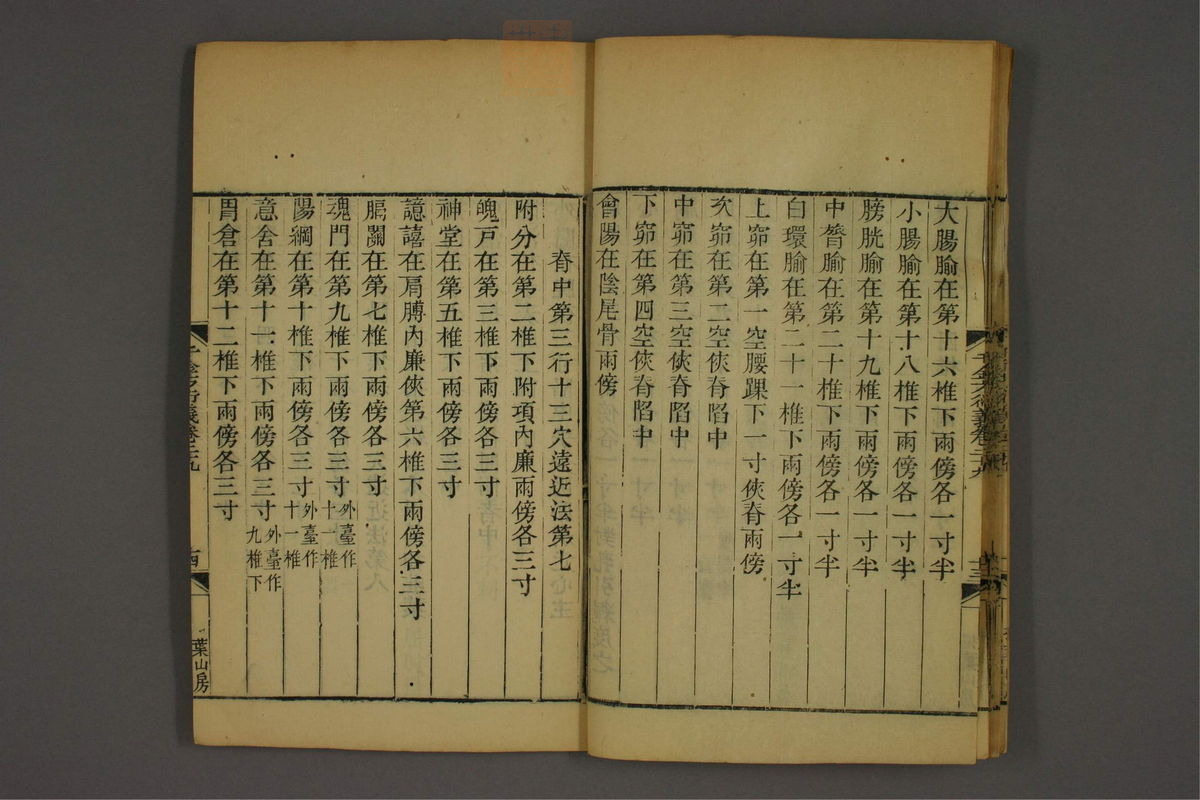 大腸腧在第十六椎下兩傍各一寸半
小腸腧在第十八椎下兩傍各一寸半
膀胱腧在第十九椎下兩傍各一寸半
中膂腧在第二十椎下兩傍各一寸半
白環腧在第二十一椎下兩傍各一寸半
上窌在第一空腰踝下一寸俠脊兩傍
次窌在第二空俠脊陷中
中窌在第三空俠脊陷中
下窌在第四空俠脊陷中
會陽在陰尾骨兩傍
脊中第三行十三穴遠近法第七
附分在第二椎下附項內廉兩傍各三寸
魄戸在第三椎下兩傍各三寸
神堂在第五椎下兩傍各三寸
譩譆在肩膊內廉俠第六椎下兩傍各三寸
膈關在第七椎下兩傍各三寸
魂門在第九椎下兩傍各三寸外臺作十一椎
陽綱在第十椎下兩傍各三寸外臺作十一椎
意舍在第十一椎下兩傍各三寸外臺作九椎下
胃倉在第十二椎下兩傍各三寸
千金方衍義卷二九
十四
葉山房